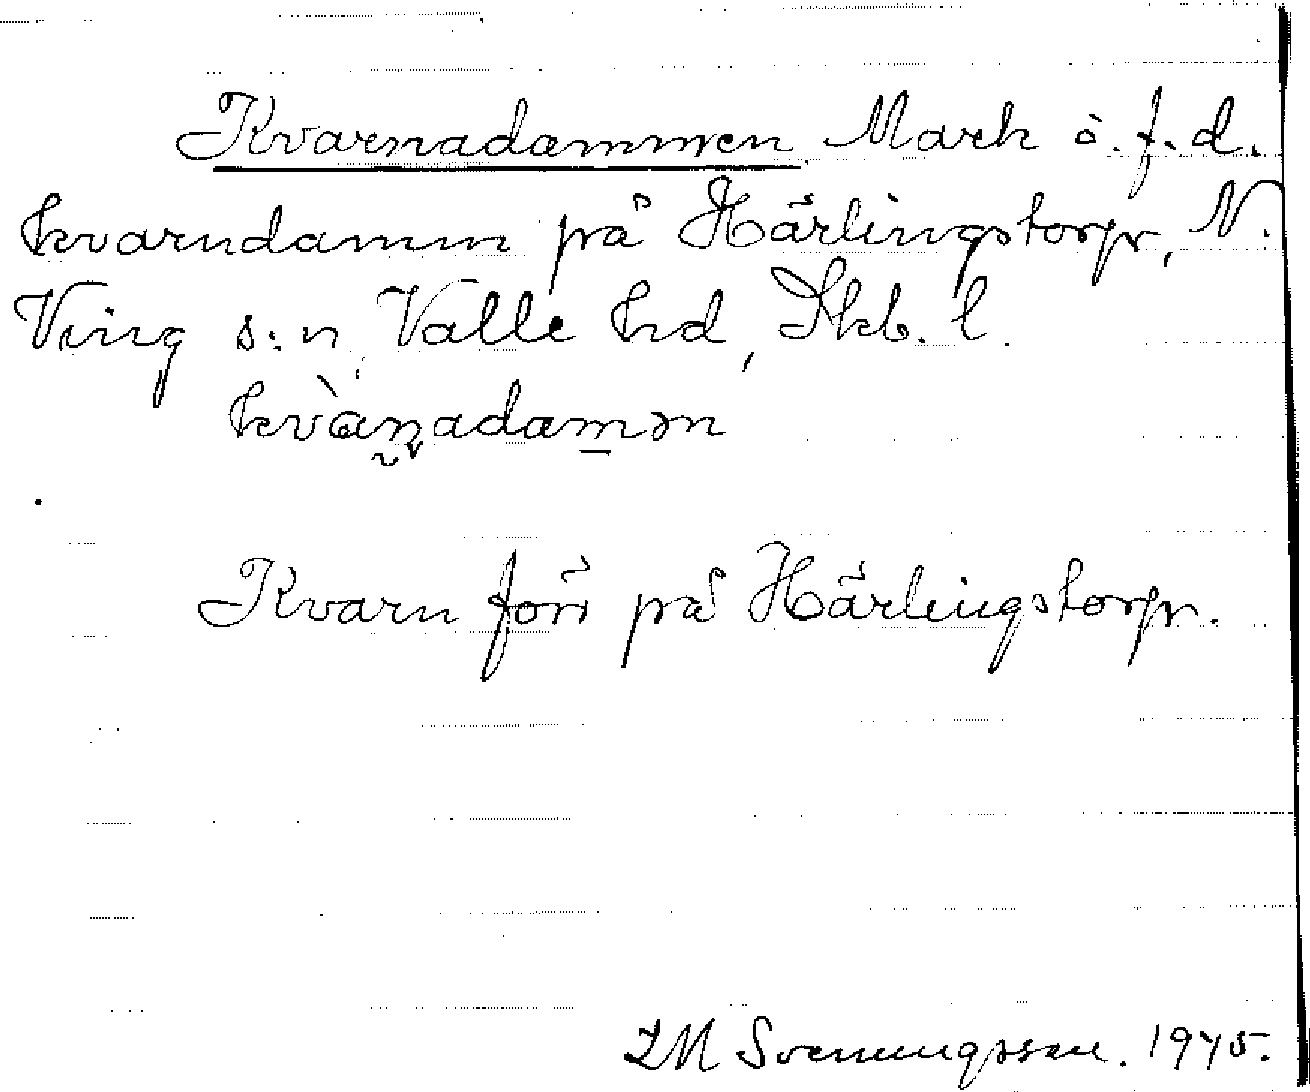 Kvarnadammen. Mark o. f.d.
kvarndamm på Härlingstorp, N.
Ving s:n, Valle hd, Skb. l.
kvànadamən
Kvarn förr på Härlingstorp.
Svenungsson. 1945.